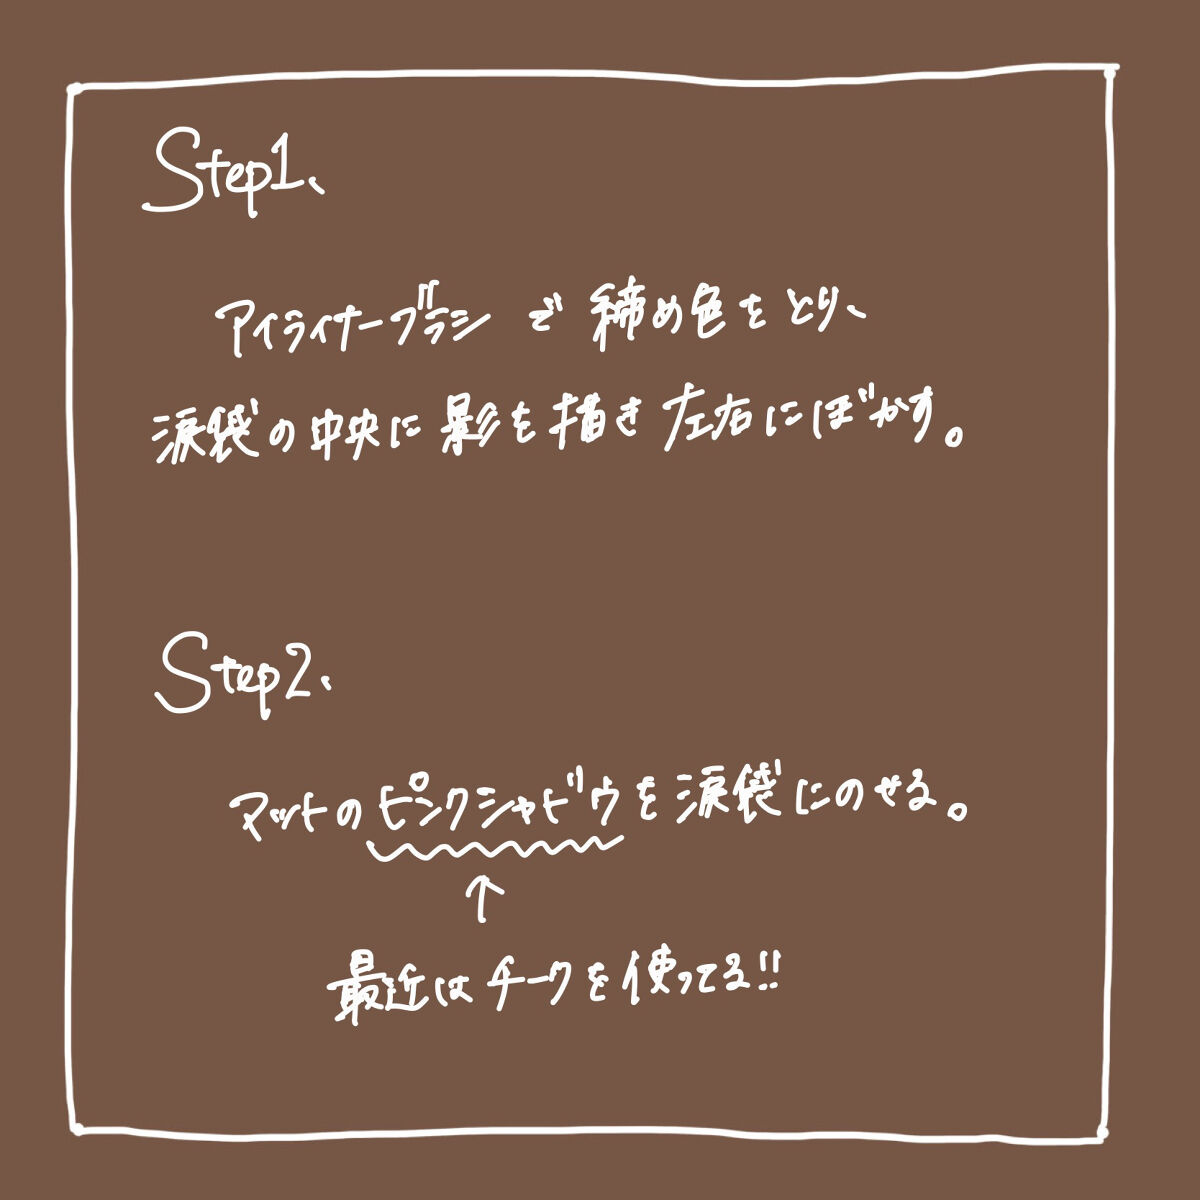 Step1、
アイライナーブラシで締め色をとり、
涙袋の中央に影を描き左右にぼかす。
Step2、
マットのピンクシャドウを涙袋にのせる。
↑
最近はチークを使ってる!!